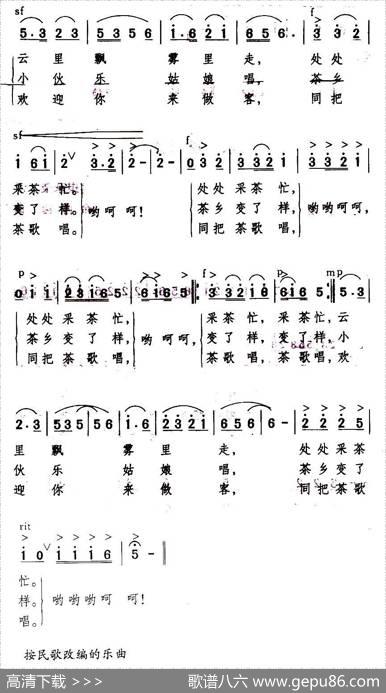 sf
5.3 2 3 5 3 5 6 1.6 2 1 6 5 6. 3 3 2
云里飘雾里走，处处
小伙乐姑娘唱，茶乡
欢迎你来做客，同把
sf f
1 6 1 2 V 3.2 2- 2- 0 3 2 3 3 2 1
采茶忙。处处采茶忙，
变了样。哟呵呵！茶乡变了样，哟哟呵呵，
茶歌唱。同把茶歌唱，
p f p mp
处处采茶忙，采茶忙，采茶忙，云
茶乡变了样，哟呵呵，变了样，变了样，小
同把茶歌唱，茶歌唱，茶歌唱，欢
2.3 5 3 5 5 6 1.6 2 3 2 1 6 5 6 2 2 2 5
里飘雾里走，处处采茶
伙乐姑娘唱，茶乡变了
迎你来做客，同把茶歌
rit
1 0 V 1 1 1 6 5 -
忙。
样。哟哟哟呵呵！
唱。
按民歌改编的乐曲
高清下载 >>> 歌谱八六 www.gepu86.com